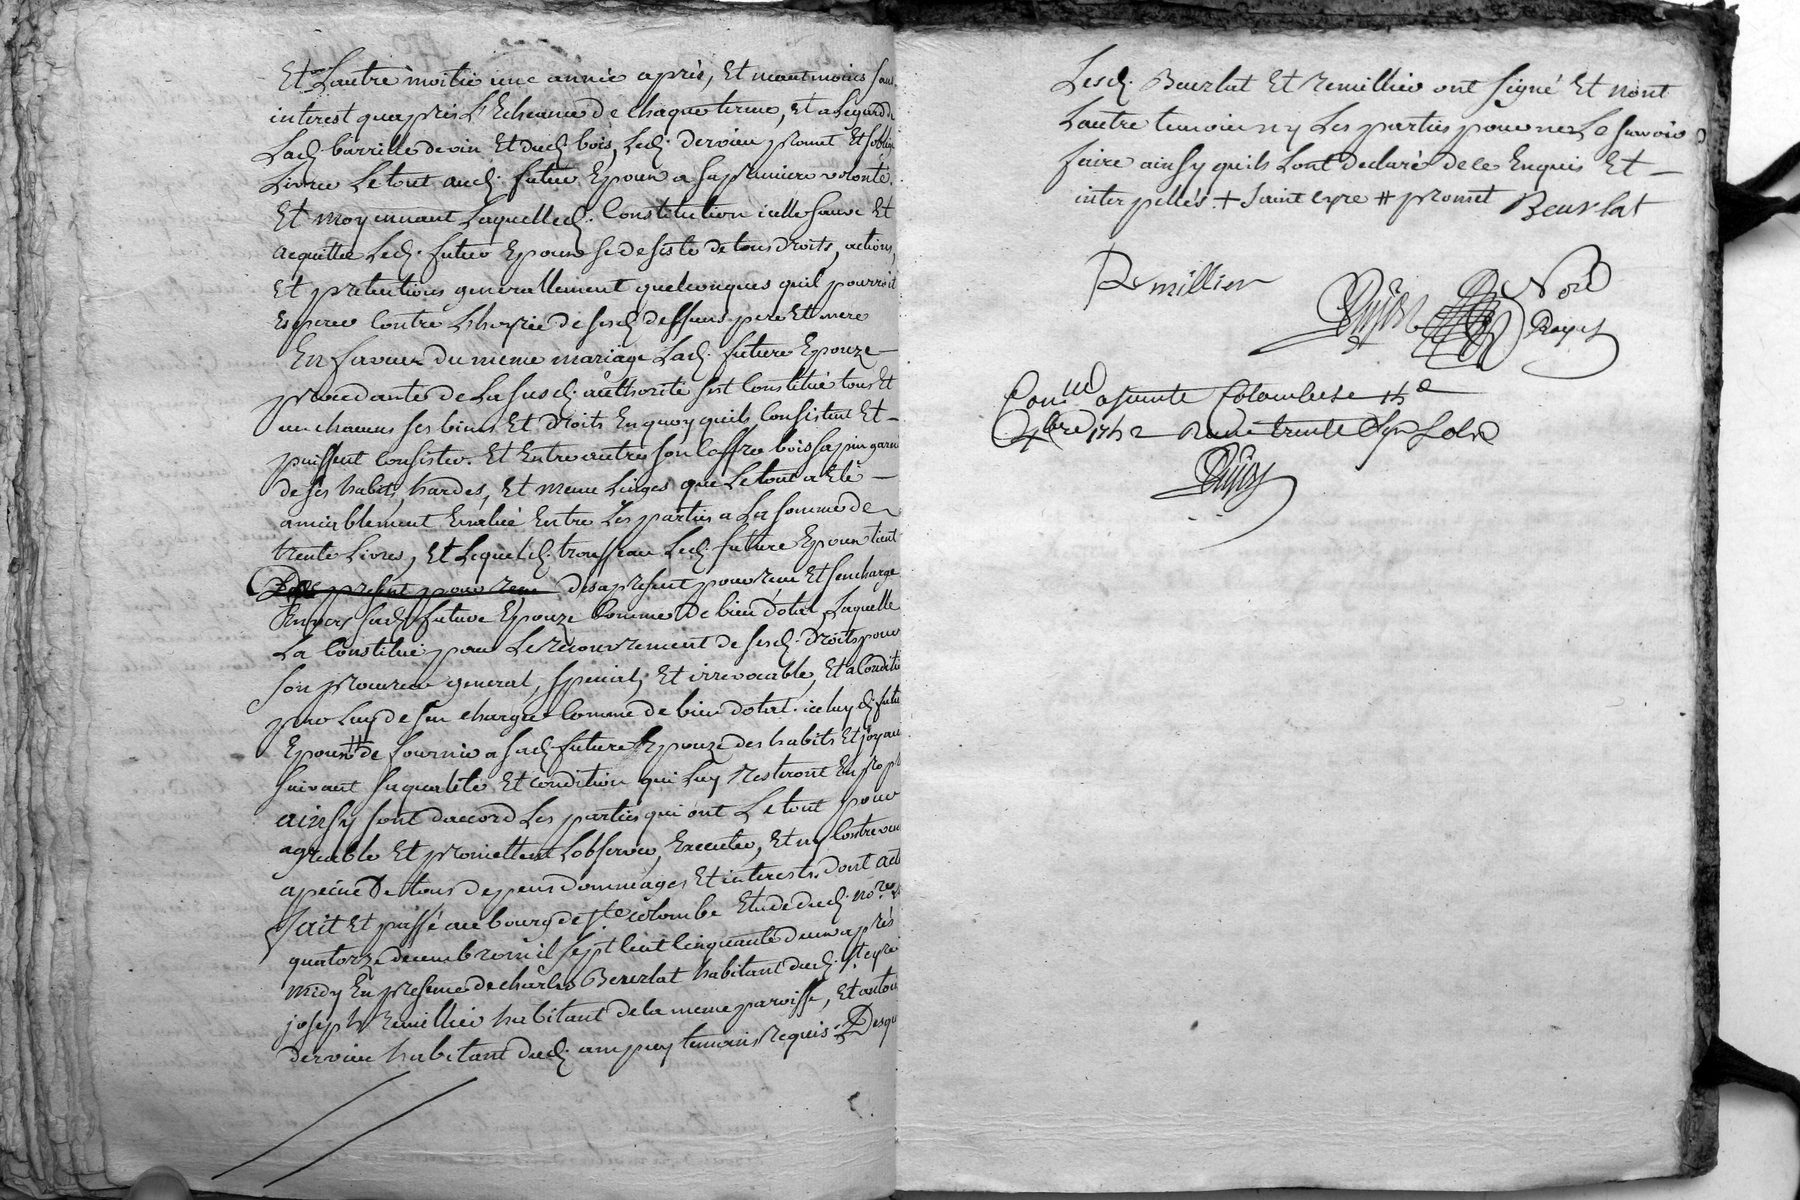 Et Lautre moitié une année après, Et neantmoins sans
interest quaprès L'Echeance de chaque terme, et a Legard de
Lad. barrille de vin Et dud. bois, Led. dervieu promet Et soblige
Livrer Le tout aud. futur Epoux a sa premiere volonté.
Et moyennant Laquelled. Constitution icelle sauve Et
acquittée Led. futur Epoux se desiste de tous droits, actions,
Et pretentions generallement quelconques quil pourroit
Esperer Contre Lhoyrie de sesd. deffuns pere Et mere
En faveur du meme mariage Lad. future Epouze
procedante de La susd. authorité sest Constitué tous Et
un chacuns ses biens Et droits En quoy quils Consistent Et
puissent Consister. Et Entre autres son Coffre bois sapin garni
de ses habits, hardes, Et menu Linges que Le tout a Eté
amiablement Evalué Entre Les parties a La somme de
trente Livres, Et Lequeld. trousseau Led. future Epoux tient
Des present pour reçu des a present pour reçu Et sencharge
Envers sad. future Epouze Comme de bien dotal, Laquelle
La Constitué pour Le recouvrement de sesd. droits pour
son procureur general, special, Et irrevocable, Et a Conditi
par Luy de sen charger Comme de bien dotal. iceluy d. futur
Epoux # de fournir a sad. future Epouze des habits Et joyau
suivant sa qualité Et condition qui Luy resteront En prop
ainsy sont daccord Les parties qui ont Le tout pour
agreable Et promettent Lobserver, Executer, Et ny Contreven
a peine De tous depens dommages Et interests. Dont acte
fait Et passé au bourg de Ste. Colombe Etude dud. nore.
quatorze decembre mil sept Cent Cinquante deux après
midy En presence de charles Beurlat habitant dud. St. Cyre
joseph Remillier habitant de la meme paroisse, Et antoi
dervieu habitant dud. ampuy temoins Requis. Desqu
Lesd. Beurlat Et remillier ont signé Et nont
Lautre temoin ny Les parties pour ne Le scavoir
faire ainsy quils Lont declaré de ce Enquis Et
interpellés. + saint cyre # promet Beurlat
Remillier
Nore
Royal
Conllé a sainte Colombe le 15e
Xbre 1752 Reçu trente six sols